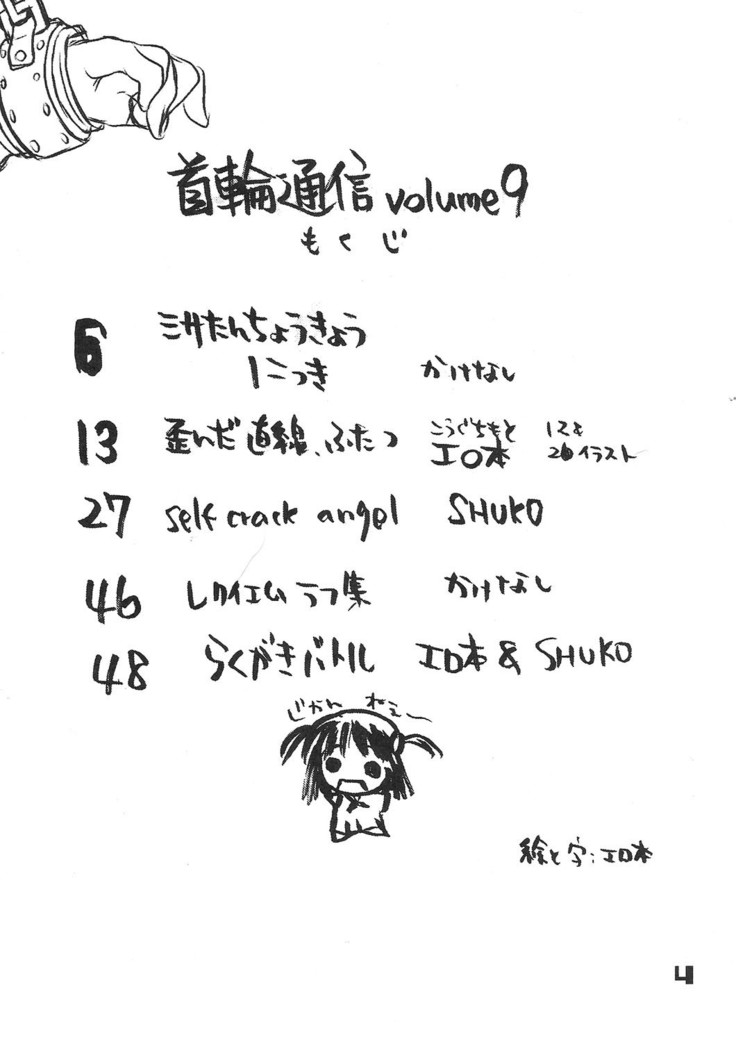 首輪通信 volume9
もくじ
6 ミサたんちょうきょう
にっき かけなし
13 歪んだ直線、ふたつ こうぐちもと
エロ本 イラスト
27 self crack angel SHUKO
46 レクイエムラフ集 かけなし
48 らくがきバトル エロ本 & SHUKO
じかんねぇ〜
絵と字:エロ本
4